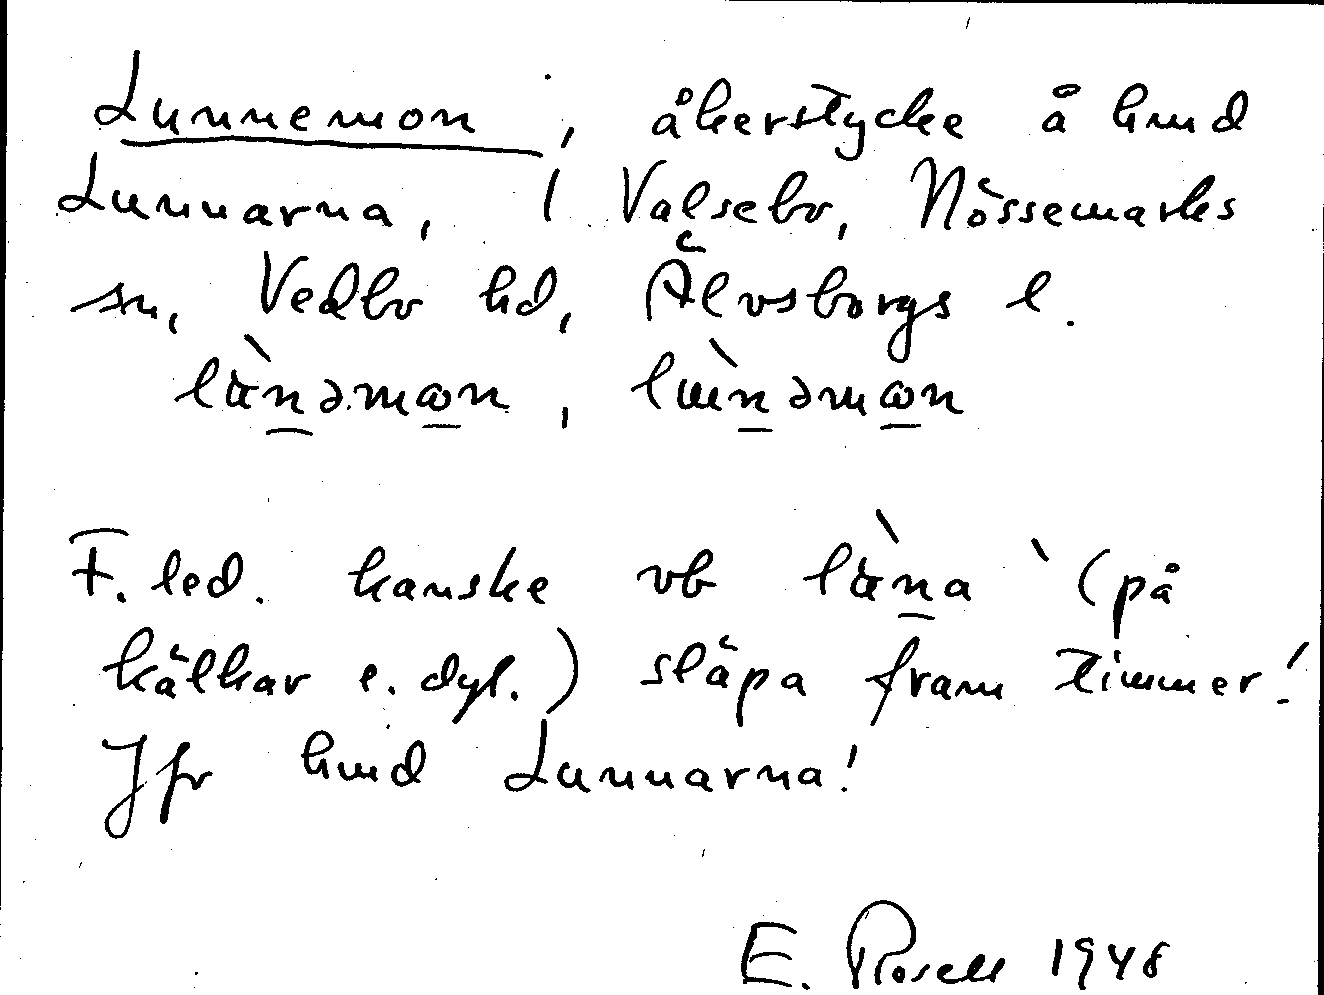 Lunnemon, åkerstycke å hmd
Lunnarna, i Valsebo, Nössemarks
sn, Vedbo hd, Älvsborgs l.
F. led. kanske vb
(på
kälkar e. dyl.) släpa fram timmer!
Jfr hmd Lunnarna!
E. Rosell 1948